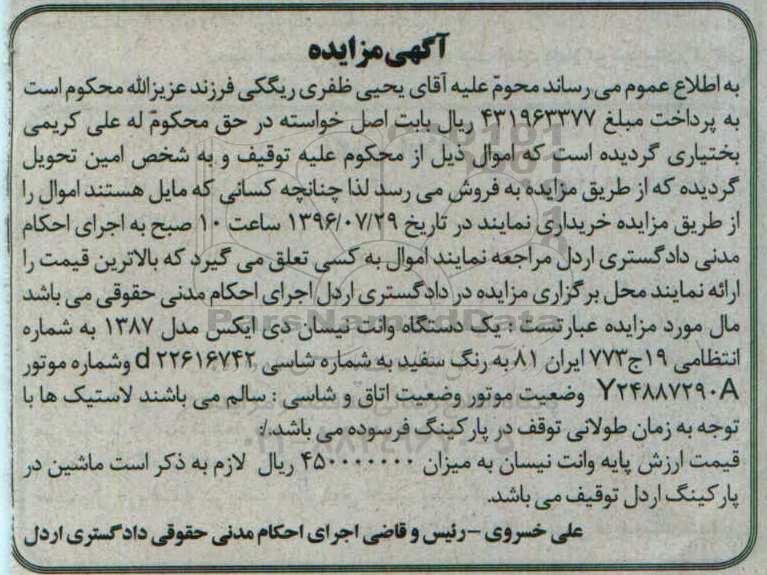 آگهی مزایده
به اطلاع عموم می رساند محومّ علیه آقای یحیی ظفری ریگکی فرزند عزیزالله محکوم است
به پرداخت مبلغ ۴۳۱۹۶۳۳۷۷ ریال بابت اصل خواسته در حق محکومّ له علی کریمی
بختیاری گردیده است که اموال ذیل از محکوم علیه توقیف و به شخص امین تحویل
گردیده که از طریق مزایده به فروش می رسد لذا چنانچه کسانی که مایل هستند اموال را
از طریق مزایده خریداری نمایند در تاریخ ۱۳۹۶/۰۷/۲۹ ساعت ۱۰ صبح به اجرای احکام
مدنی دادگستری اردل مراجعه نمایند اموال به کسی تعلق می گیرد که بالاترین قیمت را
ارائه نمایند محل برگزاری مزایده در دادگستری اردل اجرای احکام مدنی حقوقی می باشد
مال مورد مزایده عبارتست : یک دستگاه وانت نیسان دی ایکس مدل ۱۳۸۷ به شماره
انتظامی ۱۹ج۷۷۳ ایران ۸۱ به رنگ سفید به شماره شاسی d ۲۲۶۱۶۷۴۲ وشماره موتور
Y۲۴۸۸۷۲۹۰A وضعیت موتور وضعیت اتاق و شاسی : سالم می باشند لاستیک ها با
توجه به زمان طولانی توقف در پارکینگ فرسوده می باشد./:
قیمت ارزش پایه وانت نیسان به میزان ۴۵۰۰۰۰۰۰۰ ریال لازم به ذکر است ماشین در
پارکینگ اردل توقیف می باشد.
علی خسروی – رئیس و قاضی اجرای احکام مدنی حقوقی دادگستری اردل
ParsNamadData